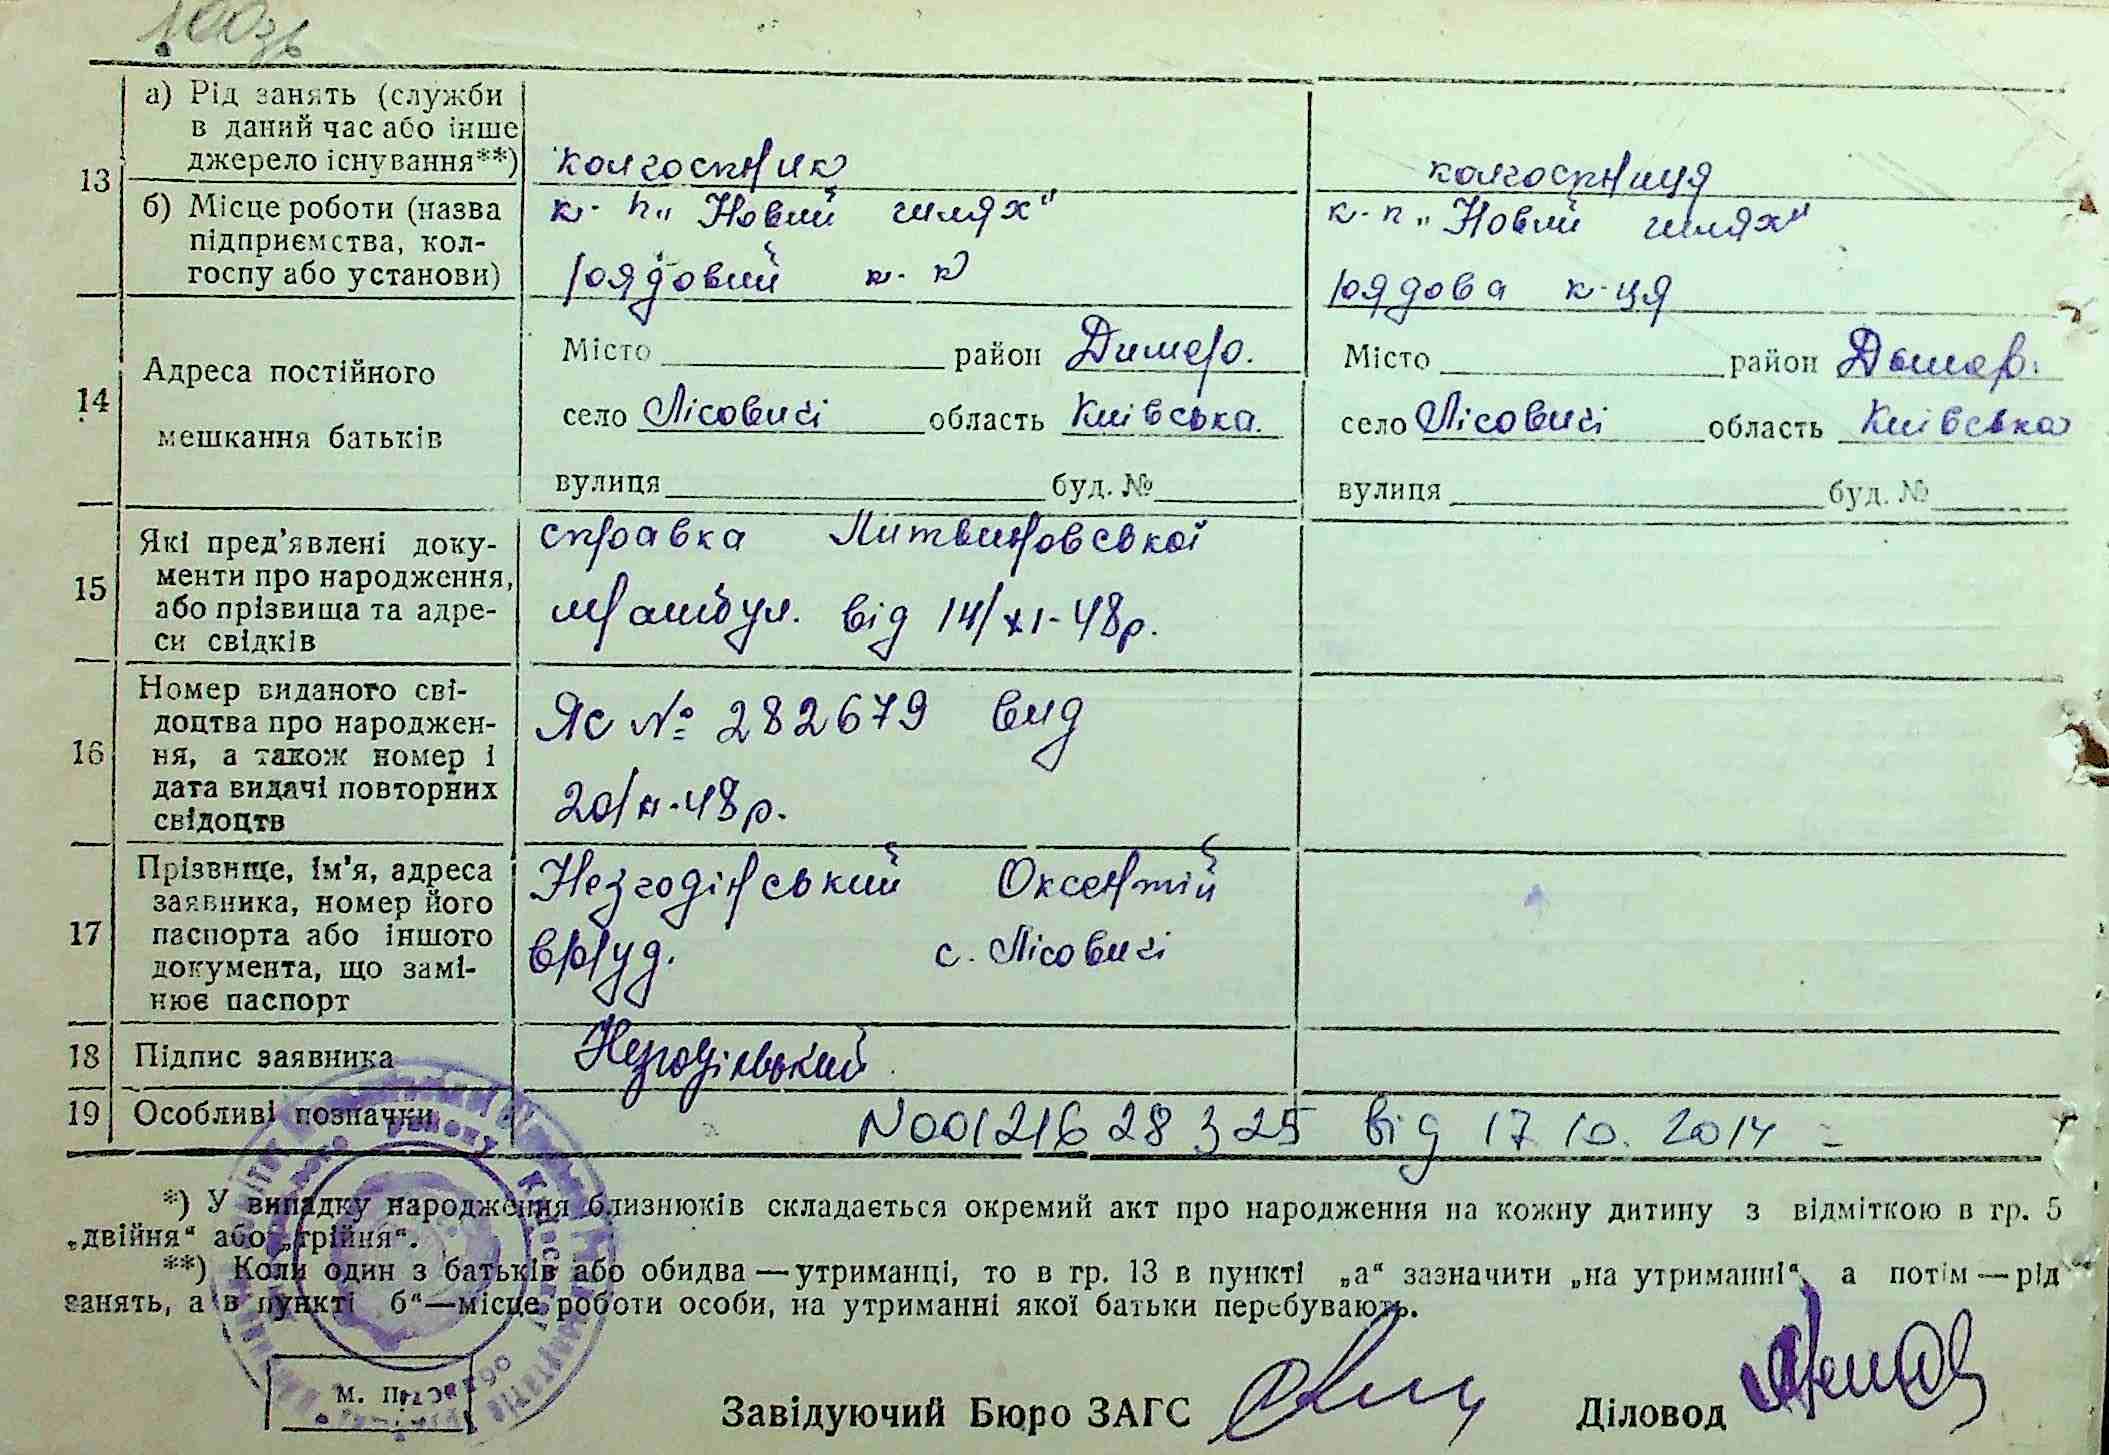 100зв
13
а) Рід занять (служби
в даний час або інше
джерело існування**)
колгоспник
колгоспниця
б) Місце роботи (назва
підприємства, кол-
госпу або установи)
к-п „Новий шлях"
рядовий к-к
к-п „Новий шлях"
рядова к-ця
14
Адреса постійного
мешкання батьків
Місто район Димер.
село Лісовичі область Київська.
вулиця буд. №
Місто район Дымер.
село Лісовичі область Київська
вулиця буд. №
15
Які пред'явлені доку-
менти про народження,
або прізвища та адре-
си свідків
справка Литвиновської
амбул. від 14/XI-48р.
16
Номер виданого сві-
доцтва про народжен-
ня, а також номер і
дата видачі повторних
свідоцтв
Яс № 282679 вид
20/XI-48р.
17
Прізвище, ім'я, адреса
заявника, номер його
паспорта або іншого
документа, що замі-
нює паспорт
Незгодінський Оксентій
с. Лісовичі
18
Підпис заявника
Незгодінський
19
Особливі позначки
N00121628325 від 17 10. 2014
*) У випадку народження близнюків складається окремий акт про народження на кожну дитину з відміткою в гр. 5
„двійня" або „трійня".
**) Коли один з батьків або обидва—утриманці, то в гр. 13 в пункті „а" зазначити „на утриманні", а потім—рід
занять, а в пункті б"—місце роботи особи, на утриманні якої батьки перебувають.
М. П.
Завідуючий Бюро ЗАГС
Діловод